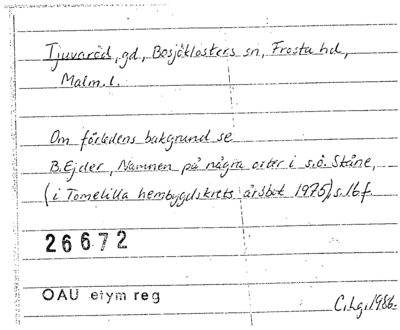 Tjuvaröd, gd, Bosjöklosters sn, Frosta hd,
Malm. l.
Om förledens bakgrund se
B. Ejder, Namnen på några orter i s.ö. Skåne,
(i Tomelilla hembygdskrets årsbok 1975), s. 16 f.
26672
OAU etym reg
C. Lg. 1986.